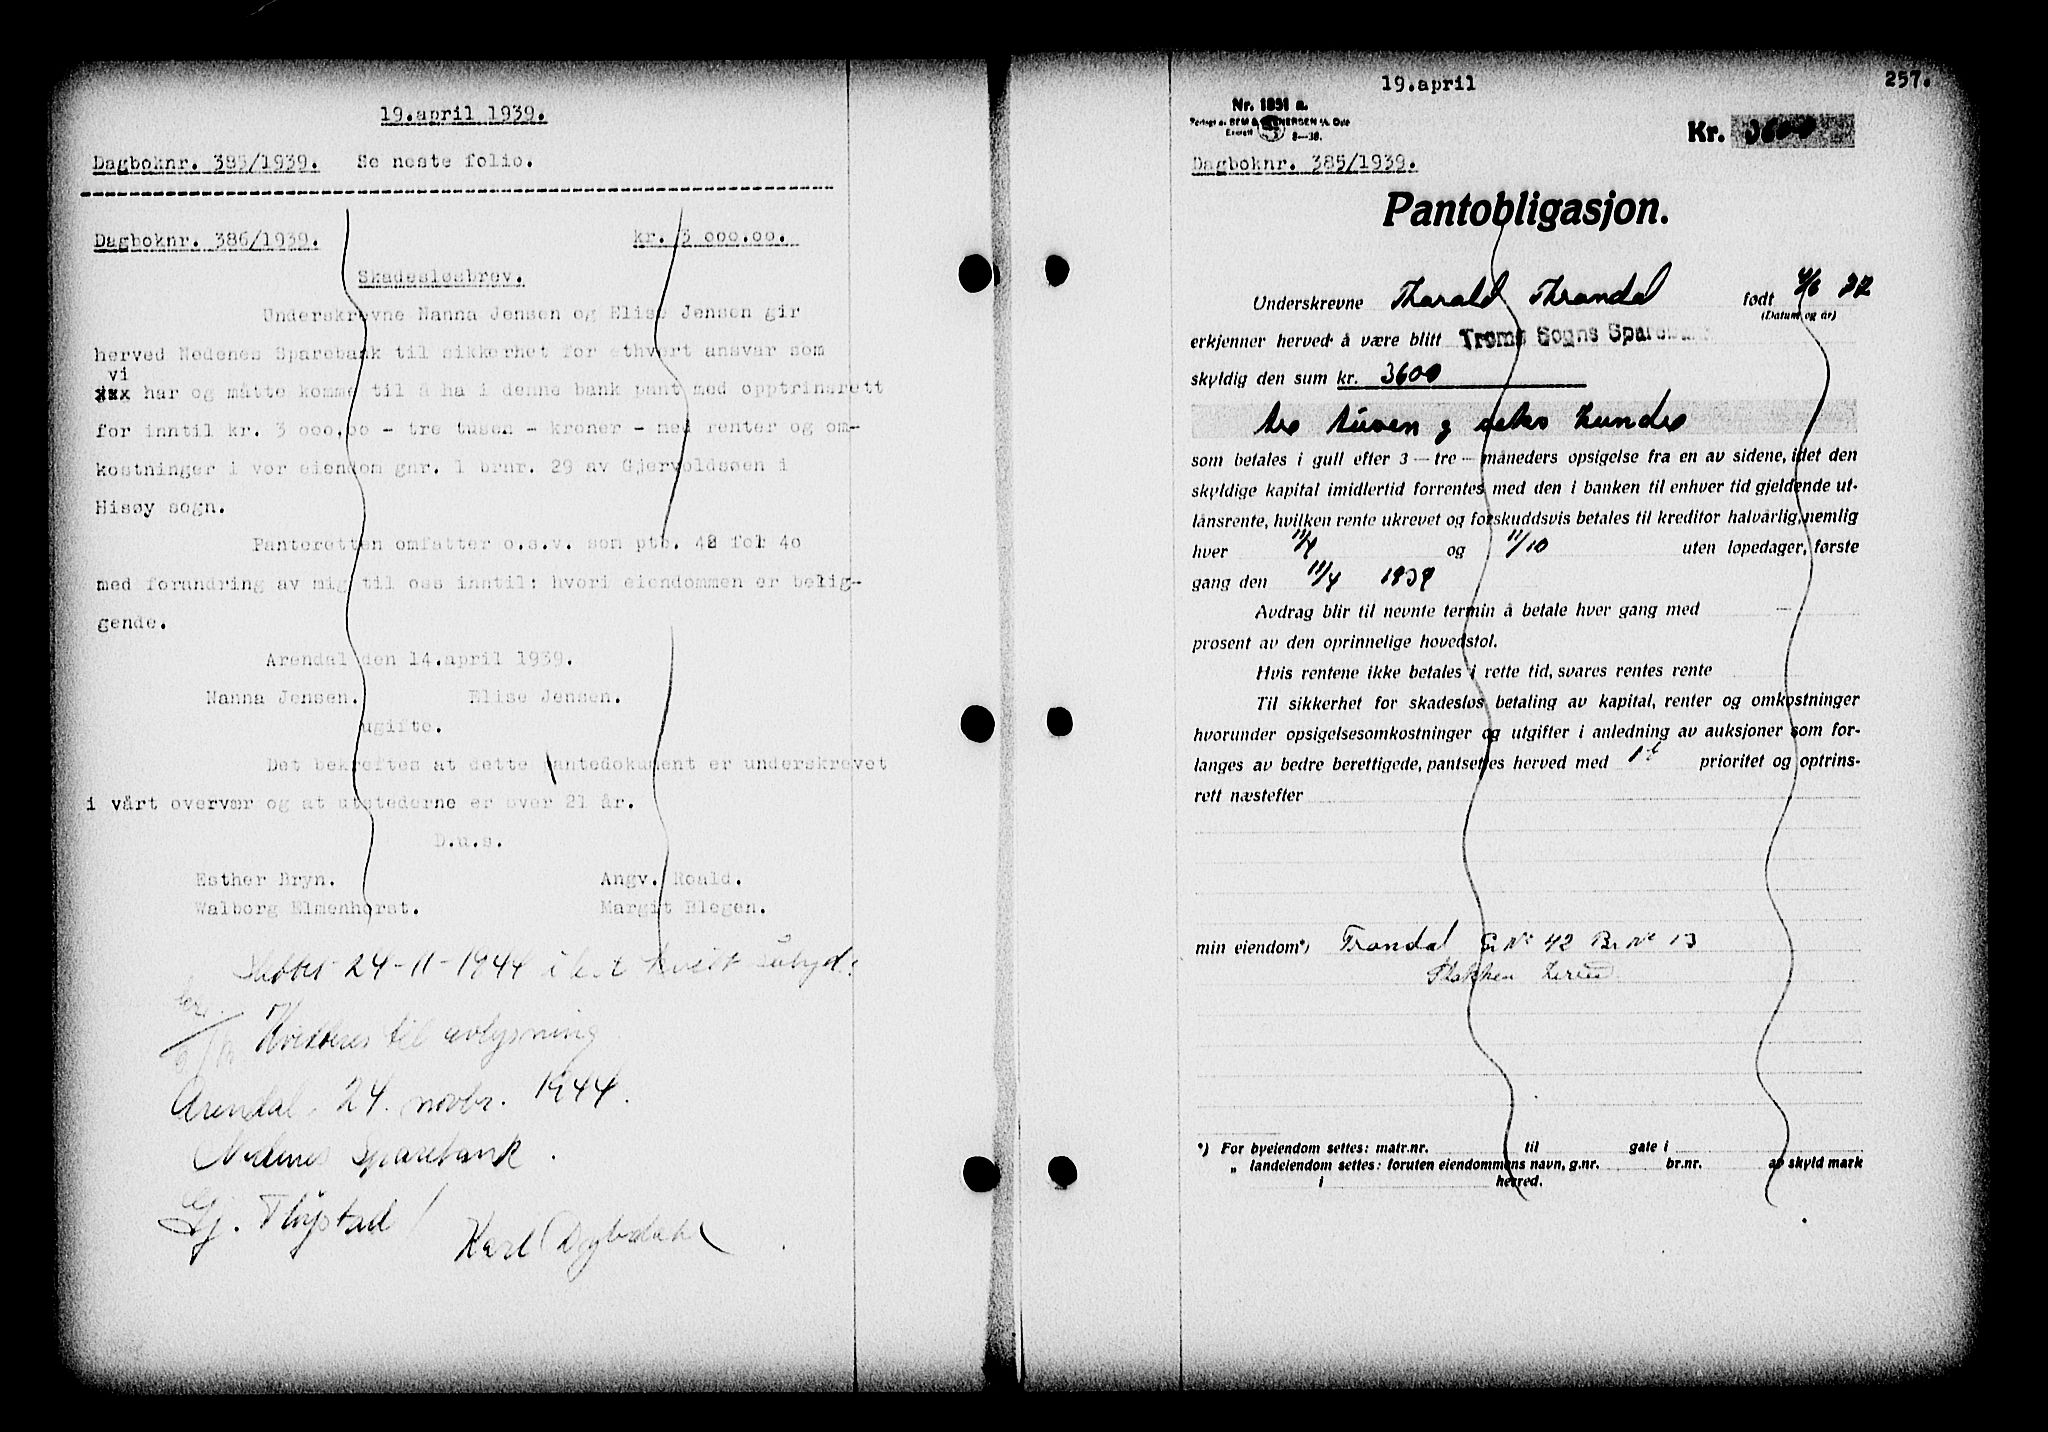 19.april 1939.
Dagboknr. 385/1939. Se neste folio.
Dagboknr. 386/1939. kr. 3 000.00.
Skadesløsbrev.
Underskrevne Nanna Jensen og Elise Jensen gir
herved Nedenes Sparebank til sikkerhet for ethvert ansvar som
vi
xxx har og måtte komme til å ha i denne bank pant med opptrinsrett
for inntil kr. 3 000,00 - tre tusen - kroner - med renter og om-
kostninger i vor eiendom gnr. 1 brnr. 29 av Gjervoldsøen i
Hisøy sogn.
Panteretten omfatter o.s.v. som ptb. 42 fol 40
med forandring av mig til oss inntil: hvori eiendommen er belig-
gende.
Arendal den 14.april 1939.
Nanna Jensen. Elise Jensen.
ugifte.
Det bekreftes at dette pantedokument er underskrevet
i vårt overvær og at utstederne er over 21 år.
D.u.s.
Esther Bryn. Angv. Roald.
Walborg Elmenhorst. Margit Blegen.
24-11-1944
Kvitteres til avlysning
Arendal, 24. novbr. 1944.
Nedenes Sparebank.
Gj. Fløystad / Karl
19.april 257.
Nr. 1891 a.
Kr. 3600
Dagboknr. 385/1939.
Pantobligasjon.
Underskrevne Tharald Thrandal født 4/6 22
(Datum og år)
erkjenner herved å være blitt Tromø Sogns Sparebank
skyldig den sum kr. 3600
tre tusen og seks hundre
som betales i gull efter 3 — tre — måneders opsigelse fra en av sidene, idet den
skyldige kapital imidlertid forrentes med den i banken til enhver tid gjeldende ut-
lånsrente, hvilken rente ukrevet og forskuddsvis betales til kreditor halvårlig, nemlig
hver 11/4 og 11/10 uten løpedager, første
gang den 11/4 1939
Avdrag blir til nevnte termin å betale hver gang med —
prosent av den oprinnelige hovedstol.
Hvis rentene ikke betales i rette tid, svares rentes rente
Til sikkerhet for skadesløs betaling av kapital, renter og omkostninger
hvorunder opsigelsesomkostninger og utgifter i anledning av auksjoner som for-
langes av bedre berettigede, pantsettes herved med 1ste prioritet og optrins-
rett næstefter
min eiendom*) Trondal G. No 42 Br. No 13
Stokken herred
*) For byeiendom settes: matr.nr. til gate i
„ landeiendom settes: foruten eiendommens navn, g.nr. br.nr. av skyld mark
i herred.